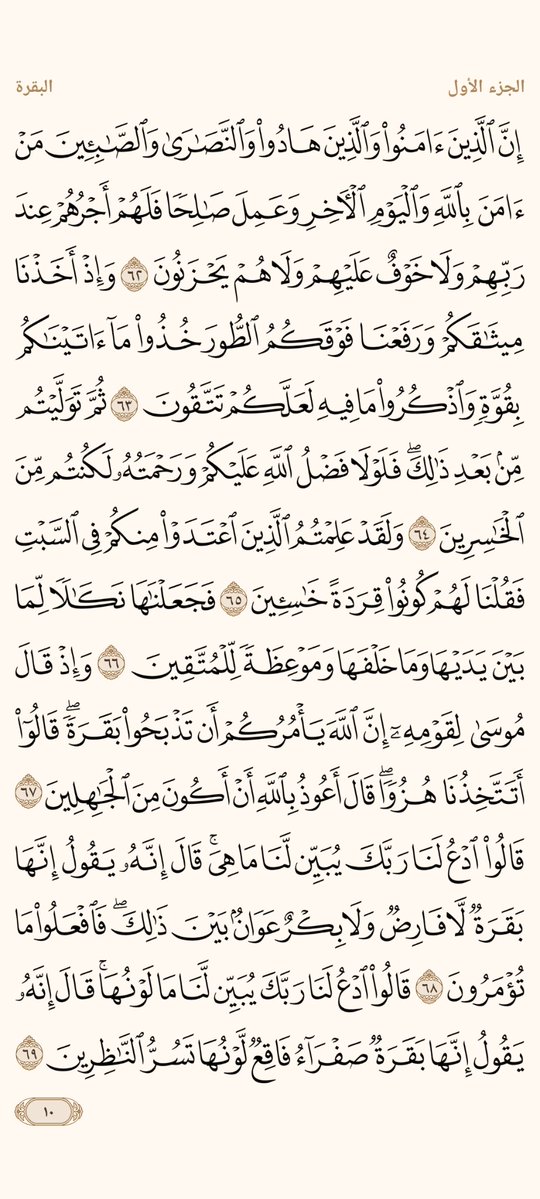 الجزء الأول
البقرة
إِنَّ ٱلَّذِينَ ءَامَنُوا۟ وَٱلَّذِينَ هَادُوا۟ وَٱلنَّصَـٰرَىٰ وَٱلصَّـٰبِـِٔينَ مَنْ
ءَامَنَ بِٱللَّهِ وَٱلْيَوْمِ ٱلْـَٔاخِرِ وَعَمِلَ صَـٰلِحًا فَلَهُمْ أَجْرُهُمْ عِندَ
رَبِّهِمْ وَلَا خَوْفٌ عَلَيْهِمْ وَلَا هُمْ يَحْزَنُونَ ٦٢ وَإِذْ أَخَذْنَا
مِيثَـٰقَكُمْ وَرَفَعْنَا فَوْقَكُمُ ٱلطُّورَ خُذُوا۟ مَآ ءَاتَيْنَـٰكُم
بِقُوَّةٍ وَٱذْكُرُوا۟ مَا فِيهِ لَعَلَّكُمْ تَتَّقُونَ ٦٣ ثُمَّ تَوَلَّيْتُم
مِّنۢ بَعْدِ ذَٰلِكَ ۖ فَلَوْلَا فَضْلُ ٱللَّهِ عَلَيْكُمْ وَرَحْمَتُهُۥ لَكُنتُم مِّنَ
ٱلْخَـٰسِرِينَ ٦٤ وَلَقَدْ عَلِمْتُمُ ٱلَّذِينَ ٱعْتَدَوْا۟ مِنكُمْ فِى ٱلسَّبْتِ
فَقُلْنَا لَهُمْ كُونُوا۟ قِرَدَةً خَـٰسِـِٔينَ ٦٥ فَجَعَلْنَـٰهَا نَكَـٰلًا لِّمَا
بَيْنَ يَدَيْهَا وَمَا خَلْفَهَا وَمَوْعِظَةً لِّلْمُتَّقِينَ ٦٦ وَإِذْ قَالَ
مُوسَىٰ لِقَوْمِهِۦٓ إِنَّ ٱللَّهَ يَأْمُرُكُمْ أَن تَذْبَحُوا۟ بَقَرَةً ۖ قَالُوٓا۟
أَتَتَّخِذُنَا هُزُوًا ۖ قَالَ أَعُوذُ بِٱللَّهِ أَنْ أَكُونَ مِنَ ٱلْجَـٰهِلِينَ ٦٧
قَالُوا۟ ٱدْعُ لَنَا رَبَّكَ يُبَيِّن لَّنَا مَا هِىَ ۚ قَالَ إِنَّهُۥ يَقُولُ إِنَّهَا
بَقَرَةٌ لَّا فَارِضٌ وَلَا بِكْرٌ عَوَانٌۢ بَيْنَ ذَٰلِكَ ۖ فَٱفْعَلُوا۟ مَا
تُؤْمَرُونَ ٦٨ قَالُوا۟ ٱدْعُ لَنَا رَبَّكَ يُبَيِّن لَّنَا مَا لَوْنُهَا ۚ قَالَ إِنَّهُۥ
يَقُولُ إِنَّهَا بَقَرَةٌ صَفْرَآءُ فَاقِعٌ لَّوْنُهَا تَسُرُّ ٱلنَّـٰظِرِينَ ٦٩
١٠